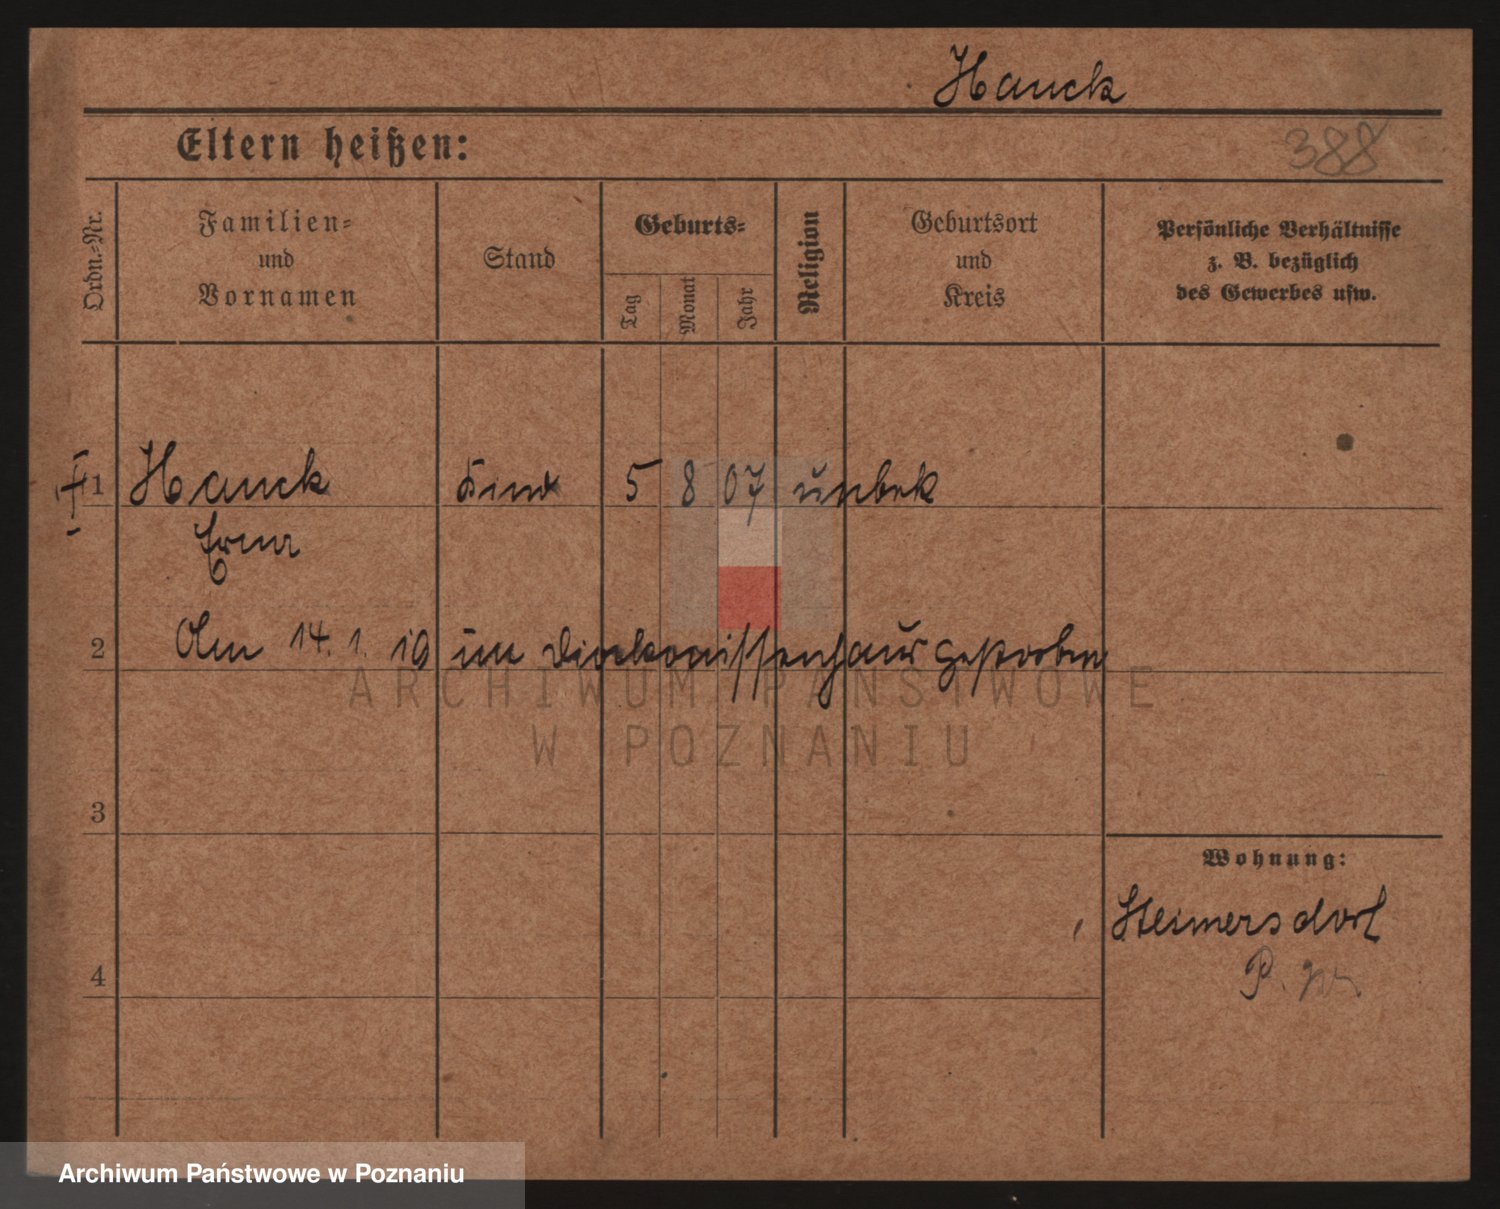 Hanck
Eltern heißen:
388
Ordn.=Nr.
Familien=
und
Vornamen
Stand
Geburts=
Tag
Monat
Jahr
Religion
Geburtsort
und
Kreis
Persönliche Verhältnisse
z. B. bezüglich
des Gewerbes usw.
1 Hanck Kind 5 8 07 unbek
Erna
2 Am 14. 1. 19 im Diakonissenhaus gestorben
ARCHIWUM PAŃSTWOWE
W POZNANIU
3
Wohnung:
4
P.
Archiwum Państwowe w Poznaniu